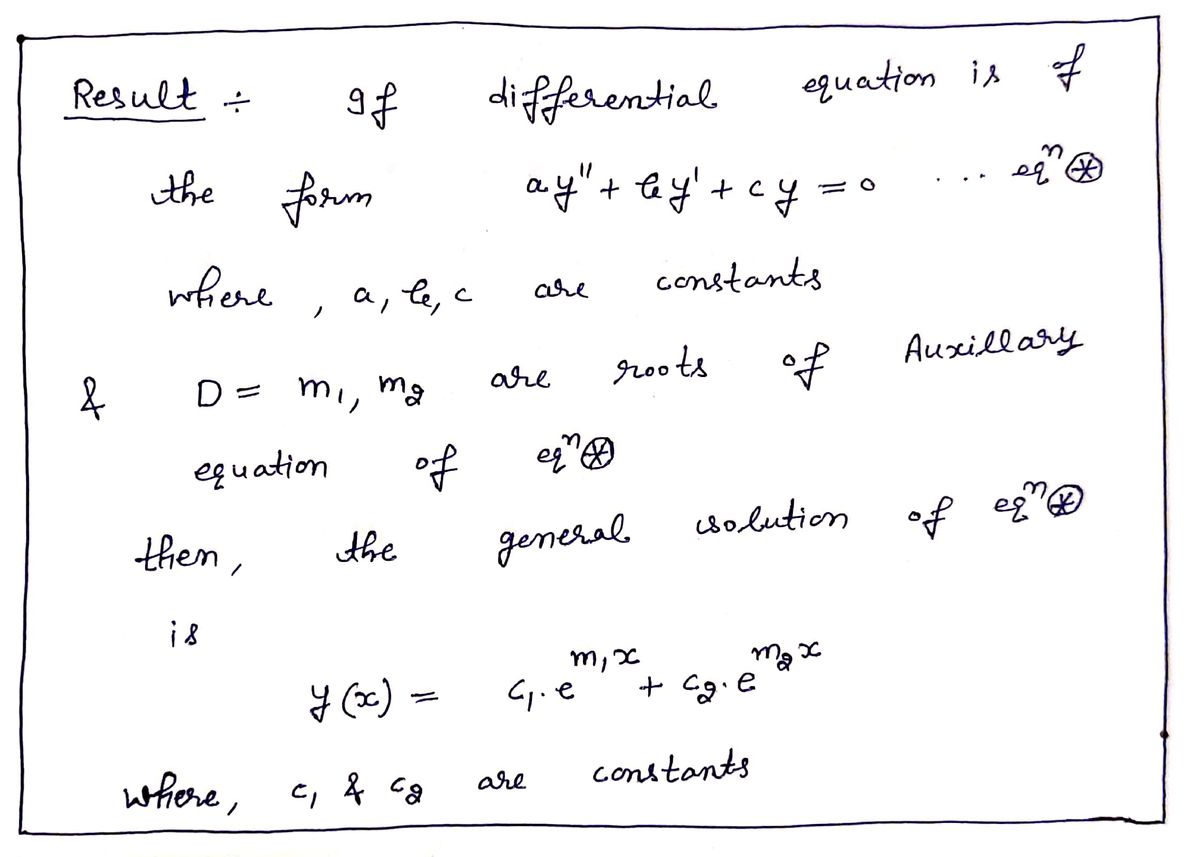 Result ÷ If differential equation is of
the form ay" + by' + cy = 0 ... eqⁿ ⊛
where, a, b, c are constants
& D = m₁, m₂ are roots of Auxillary
equation of eqⁿ ⊛
then, the general solution of eqⁿ ⊛
is
y(x) = c₁·e^{m₁x} + c₂·e^{m₂x}
where, c₁ & c₂ are constants